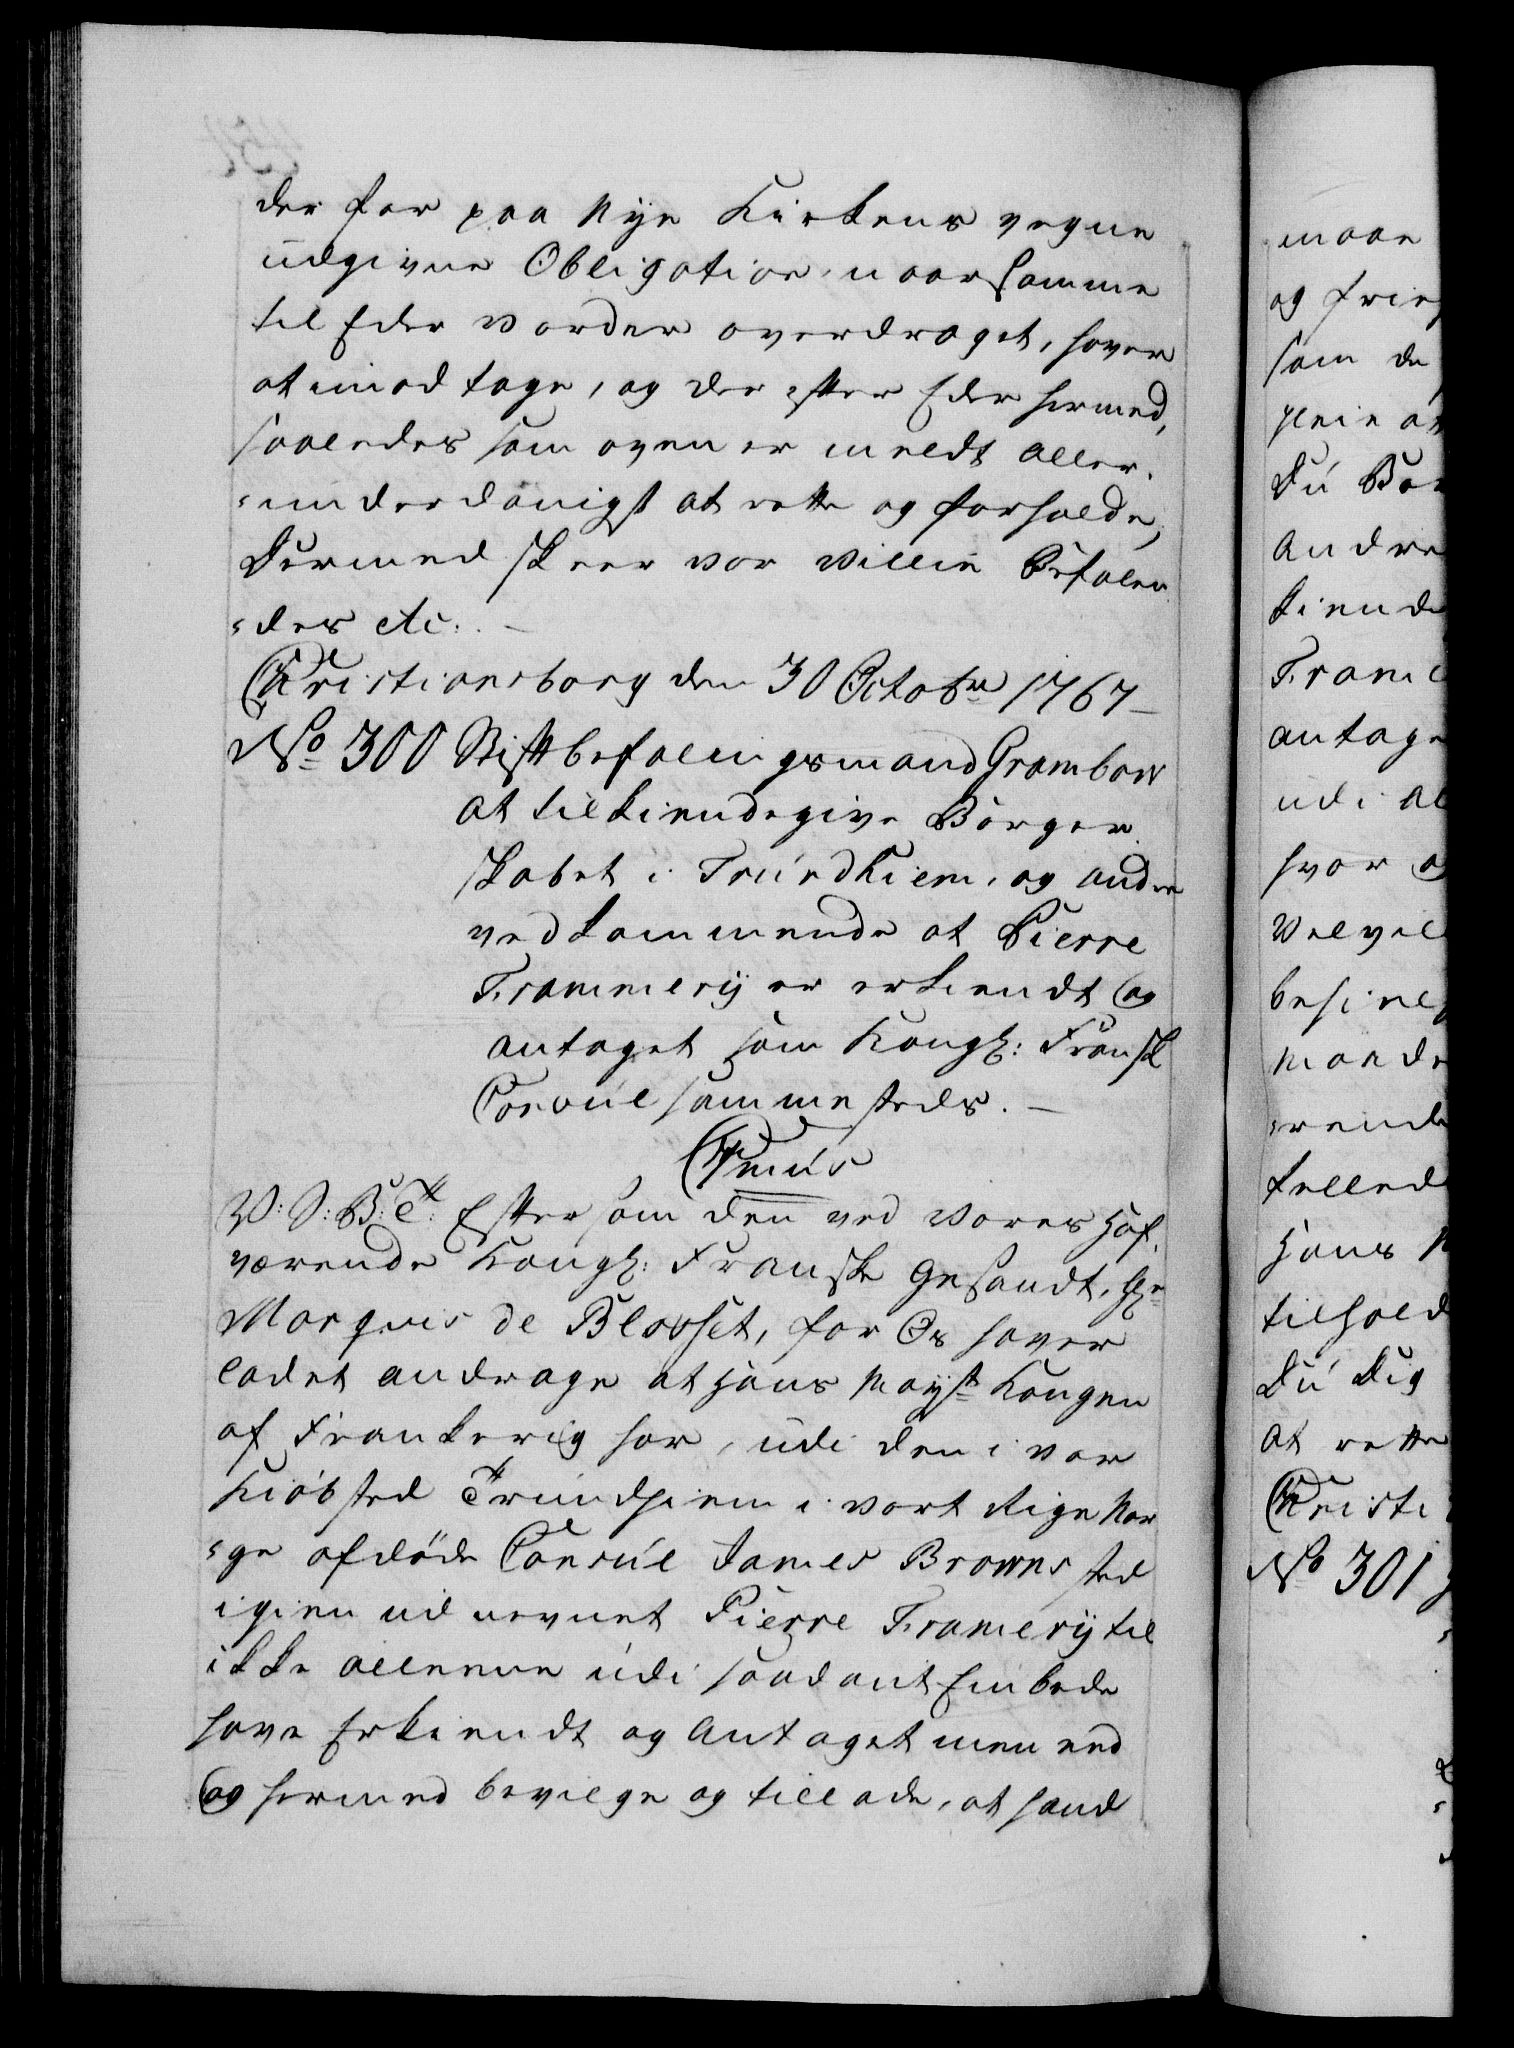 der for paa Nye Kirkens vegne
udgivne Obligation, naar samme
til Eder vorder overdraget, haver
at imodtage, og der efter Eder hermed,
saaledes som oven er meldt aller-
=underdanigst at rette og forholde,
Dermed skeer vor villie Befalen
=des etc: . —
Christiansborg den 30 Octobr 1767 —
No 300 Stiftbefalingsmand Grambow
at tilkiendegive Borger
skabet i Trundhiem, og andre
vedkommende at Pierre
Frammery er erkiendt og
antaget som Kongl: Fransk
Consul sammesteds. —
Cnus
V: S: B: T: Eftersom den ved Vores Hof,
værende Kongl: Franske Gesandt, Hr
Marquis de Blosset, for Os haver
ladet andrage at Hans Mayst Kongen
af Frankerig har, udi den i vor
Kiöbsted Trundhiem i vort Rige Nor
=ge afdöde Consul James Browns sted
igien udnevnet Pierre Framery til
ikke alleene udi saadant Embede
have Erkiendt og Antaget men end
og hermed bevilge og tillade, at hand
maae
og frie
som de
pleie at
Du Bor
Andre
kiende
Frame
antage
udi al
hvor
Velvil
besine
maade
=rende
felled
Hans
tilhold
Du Dig
at rette
Christi
No 301